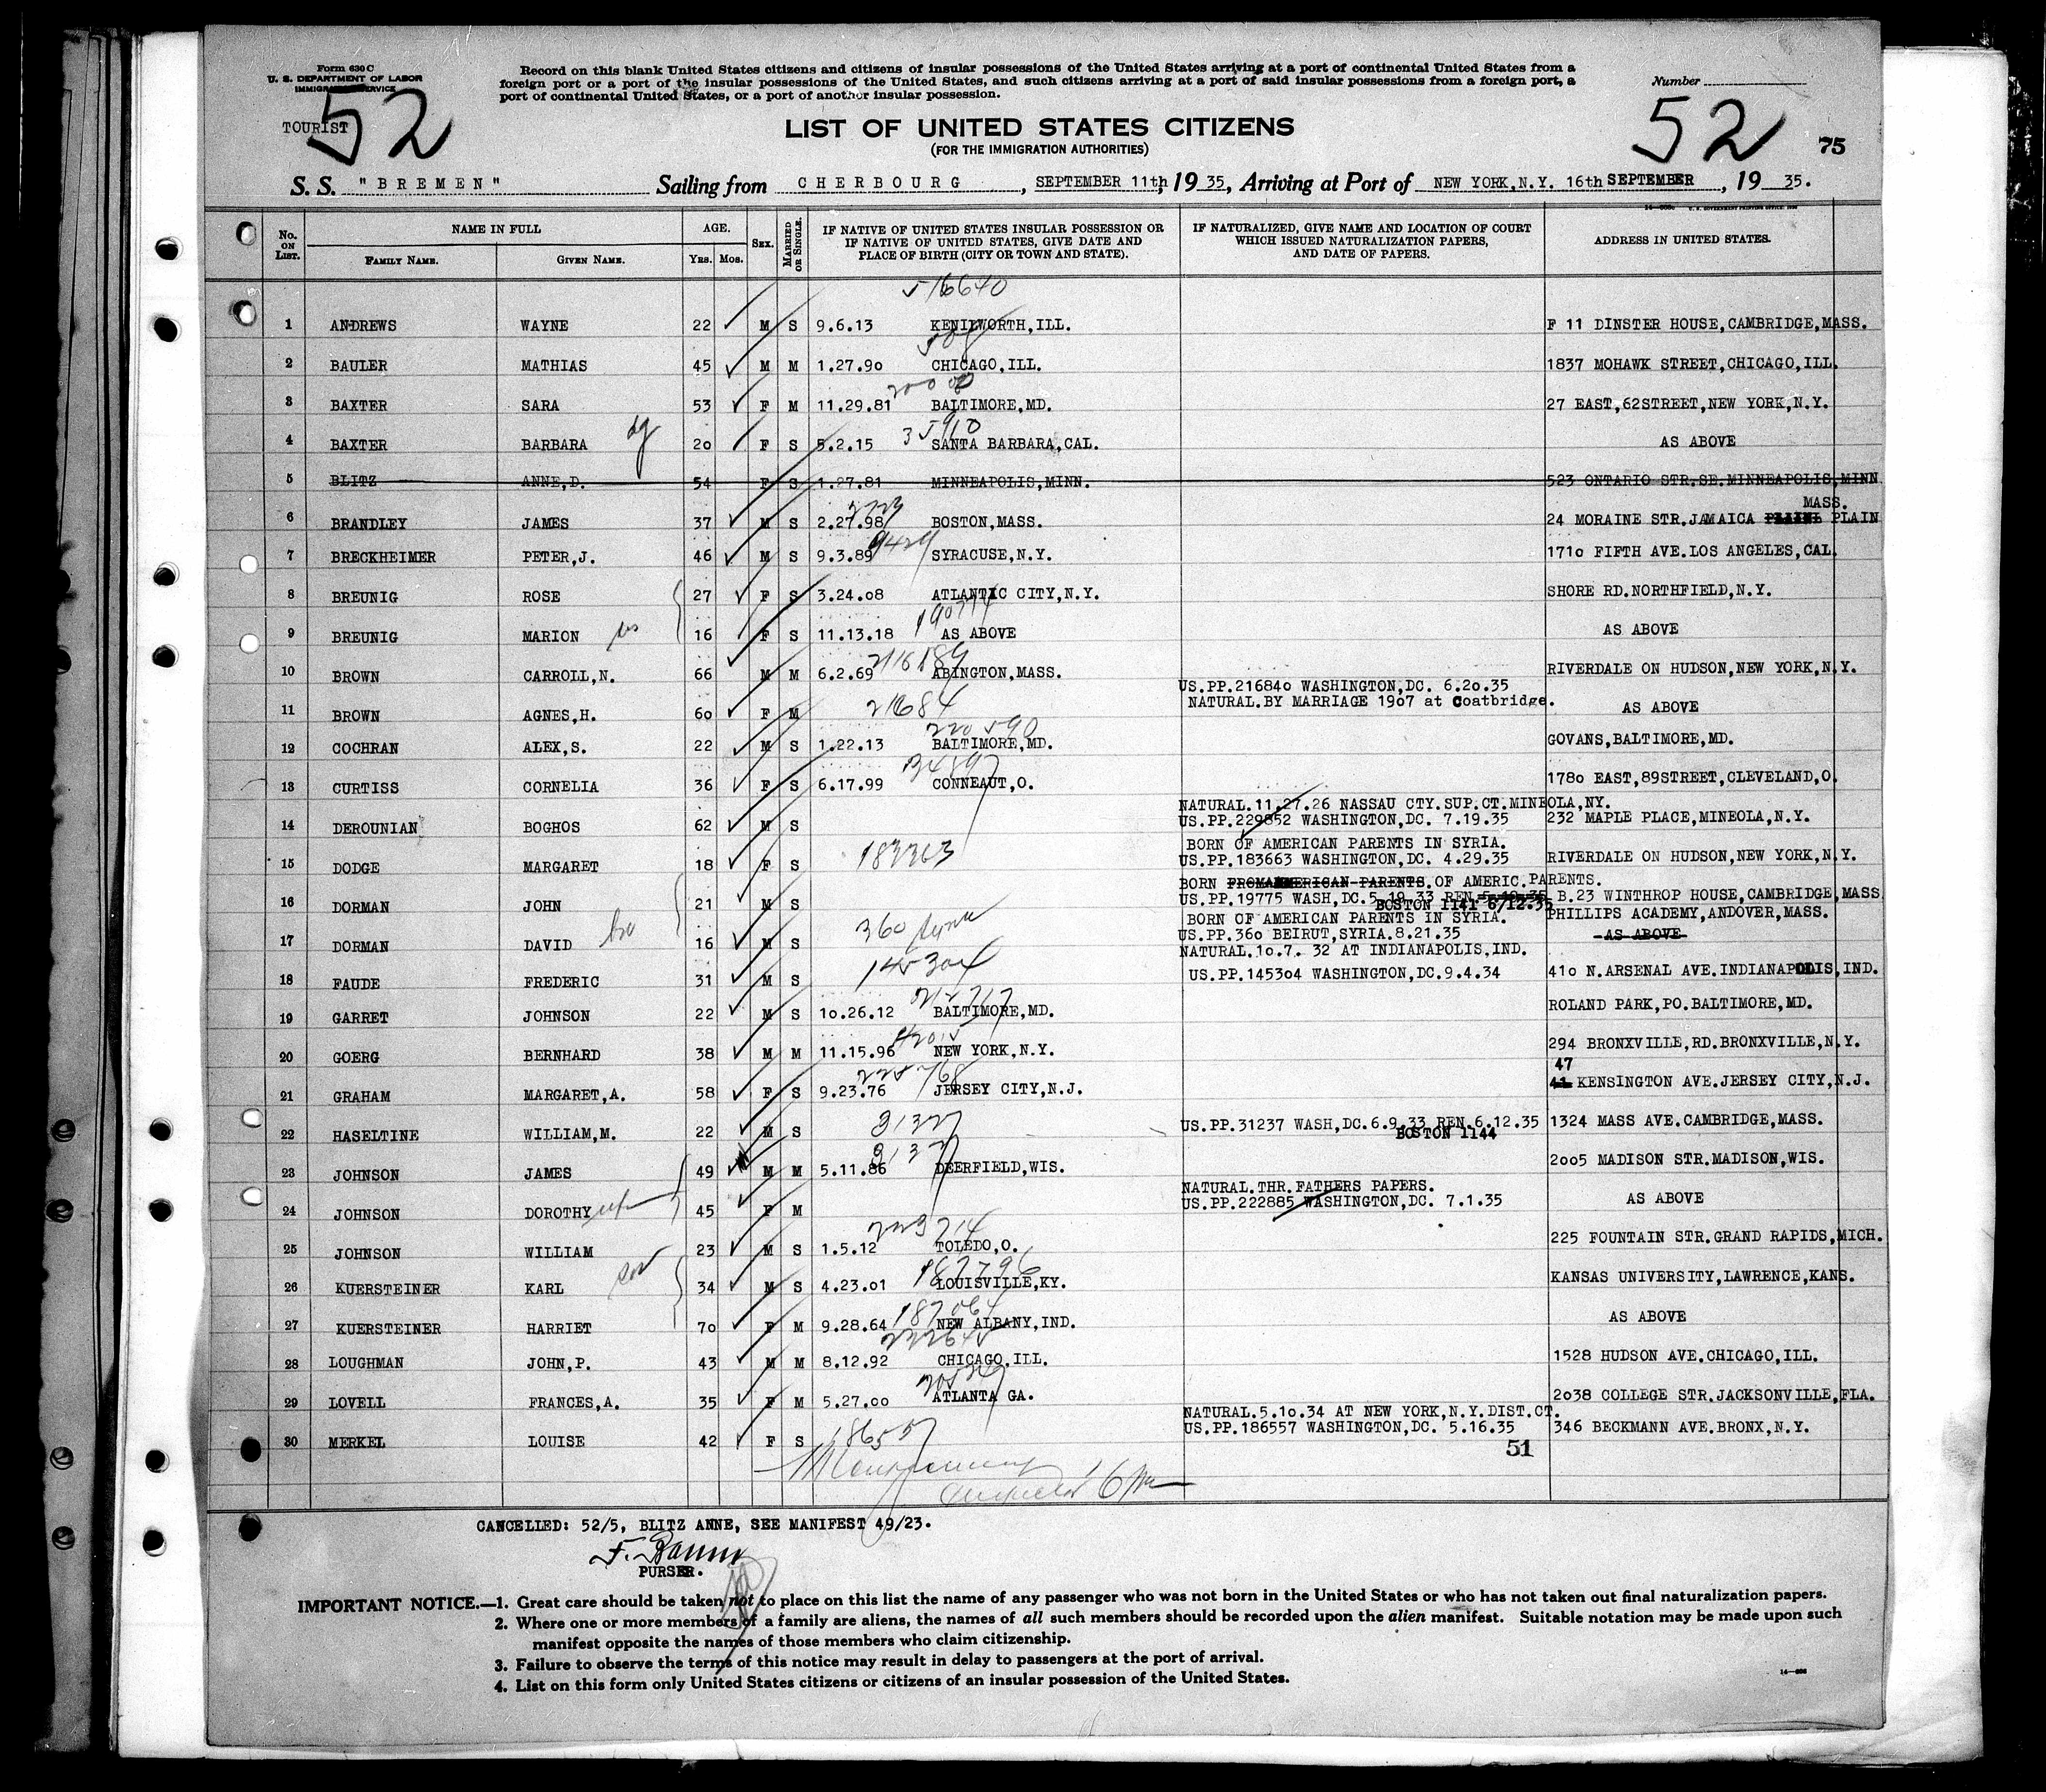 Form 630 C
U. S. DEPARTMENT OF LABOR
IMMIGRATION SERVICE
TOURIST
52
Record on this blank United States citizens and citizens of insular possessions of the United States arriving at a port of continental United States from a
foreign port or a port of the insular possessions of the United States, and such citizens arriving at a port of said insular possessions from a foreign port, a
port of continental United States, or a port of another insular possession.
Number
52
75
LIST OF UNITED STATES CITIZENS
(FOR THE IMMIGRATION AUTHORITIES)
S. S. "BREMEN" Sailing from CHERBOURG, SEPTEMBER 11th, 19 35, Arriving at Port of NEW YORK,N.Y. 16th SEPTEMBER, 19 35.
No. ON LIST. NAME IN FULL FAMILY NAME. GIVEN NAME. AGE. Yrs. Mos. SEX. MARRIED OR SINGLE. IF NATIVE OF UNITED STATES INSULAR POSSESSION OR IF NATIVE OF UNITED STATES, GIVE DATE AND PLACE OF BIRTH (CITY OR TOWN AND STATE). IF NATURALIZED, GIVE NAME AND LOCATION OF COURT WHICH ISSUED NATURALIZATION PAPERS, AND DATE OF PAPERS. ADDRESS IN UNITED STATES.
516640
1 ANDREWS WAYNE 22 M S 9.6.13 KENILWORTH,ILL. F 11 DINSTER HOUSE,CAMBRIDGE,MASS.
2 BAULER MATHIAS 45 M M 1.27.90 CHICAGO,ILL. 1837 MOHAWK STREET,CHICAGO,ILL.
3 BAXTER SARA 53 F M 11.29.81 BALTIMORE,MD. 27 EAST,62STREET,NEW YORK,N.Y.
35910
4 BAXTER BARBARA dg 20 F S 5.2.15 SANTA BARBARA,CAL. AS ABOVE
5 BLITZ ANNE,D. 54 F S 1.27.81 MINNEAPOLIS,MINN. 523 ONTARIO STR.SE.MINNEAPOLIS,MINN
MASS.
6 BRANDLEY JAMES 37 M S 2.27.98 BOSTON,MASS. 24 MORAINE STR.JAMAICA PLAIN
9429
7 BRECKHEIMER PETER,J. 46 M S 9.3.89 SYRACUSE,N.Y. 1710 FIFTH AVE.LOS ANGELES,CAL.
8 BREUNIG ROSE 27 F S 3.24.08 ATLANTIC CITY,N.Y. SHORE RD.NORTHFIELD,N.Y.
9 BREUNIG MARION sis 16 F S 11.13.18 AS ABOVE AS ABOVE
216189
10 BROWN CARROLL,N. 66 M M 6.2.69 ABINGTON,MASS. RIVERDALE ON HUDSON,NEW YORK,N.Y.
US.PP.216840 WASHINGTON,DC. 6.20.35
NATURAL.BY MARRIAGE 1907 at Coatbridge.
11 BROWN AGNES,H. 60 F M 21684 AS ABOVE
220590
12 COCHRAN ALEX,S. 22 M S 1.22.13 BALTIMORE,MD. GOVANS,BALTIMORE,MD.
34897
13 CURTISS CORNELIA 36 F S 6.17.99 CONNEAUT,O. 1780 EAST,89STREET,CLEVELAND,O.
NATURAL.11.27.26 NASSAU CTY.SUP.CT.MINEOLA,NY.
14 DEROUNIAN BOGHOS 62 M S US.PP.229852 WASHINGTON,DC. 7.19.35 232 MAPLE PLACE,MINEOLA,N.Y.
BORN OF AMERICAN PARENTS IN SYRIA.
15 DODGE MARGARET 18 F S 183363 US.PP.183663 WASHINGTON,DC. 4.29.35 RIVERDALE ON HUDSON,NEW YORK,N.Y.
BORN FROM AMERICAN PARENTS.OF AMERIC.PARENTS.
16 DORMAN JOHN 21 M S US.PP.19775 WASH,DC.5.19.33 REN.5.19.35 B.23 WINTHROP HOUSE,CAMBRIDGE,MASS
BOSTON 1141 6/12.35
BORN OF AMERICAN PARENTS IN SYRIA. PHILLIPS ACADEMY,ANDOVER,MASS.
17 DORMAN DAVID bro 16 M S 360 US.PP.360 BEIRUT,SYRIA.8.21.35 AS ABOVE
NATURAL.10.7. 32 AT INDIANAPOLIS,IND.
18 FAUDE FREDERIC 31 M S 145304 US.PP.145304 WASHINGTON,DC.9.4.34 410 N.ARSENAL AVE.INDIANAPOLIS,IND.
212717
19 GARRET JOHNSON 22 M S 10.26.12 BALTIMORE,MD. ROLAND PARK,PO.BALTIMORE,MD.
20 GOERG BERNHARD 38 M M 11.15.96 NEW YORK,N.Y. 294 BRONXVILLE,RD.BRONXVILLE,N.Y.
47
21 GRAHAM MARGARET,A. 58 F S 9.23.76 JERSEY CITY,N.J. 41 KENSINGTON AVE.JERSEY CITY,N.J.
22 HASELTINE WILLIAM,M. 22 M S 31327 US.PP.31237 WASH,DC.6.9.33 REN.6.12.35 1324 MASS AVE.CAMBRIDGE,MASS.
BOSTON 1144
23 JOHNSON JAMES 49 M M 5.11.86 DEERFIELD,WIS. 2005 MADISON STR.MADISON,WIS.
NATURAL.THR.FATHERS PAPERS.
24 JOHNSON DOROTHY wf 45 F M US.PP.222885 WASHINGTON,DC. 7.1.35 AS ABOVE
25 JOHNSON WILLIAM 23 M S 1.5.12 TOLEDO,O. 225 FOUNTAIN STR.GRAND RAPIDS,MICH.
187796
26 KUERSTEINER KARL son 34 M S 4.23.01 LOUISVILLE,KY. KANSAS UNIVERSITY,LAWRENCE,KANS.
187064
27 KUERSTEINER HARRIET 70 F M 9.28.64 NEW ALBANY,IND. AS ABOVE
28 LOUGHMAN JOHN,P. 43 M M 8.12.92 CHICAGO,ILL. 1528 HUDSON AVE.CHICAGO,ILL.
29 LOVELL FRANCES,A. 35 F M 5.27.00 ATLANTA GA. 2038 COLLEGE STR.JACKSONVILLE,FLA.
NATURAL.5.10.34 AT NEW YORK,N.Y.DIST.CT.
30 MERKEL LOUISE 42 F S 186557 US.PP.186557 WASHINGTON,DC. 5.16.35 346 BECKMANN AVE.BRONX,N.Y.
51
CANCELLED: 52/5, BLITZ ANNE, SEE MANIFEST 49/23.
PURSER.
IMPORTANT NOTICE.—1. Great care should be taken not to place on this list the name of any passenger who was not born in the United States or who has not taken out final naturalization papers.
2. Where one or more members of a family are aliens, the names of all such members should be recorded upon the alien manifest. Suitable notation may be made upon such
manifest opposite the names of those members who claim citizenship.
3. Failure to observe the terms of this notice may result in delay to passengers at the port of arrival.
4. List on this form only United States citizens or citizens of an insular possession of the United States.